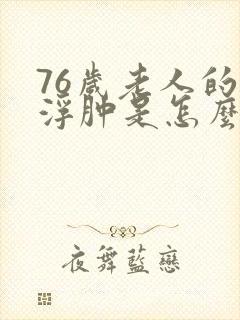 76歲老人的
浮肿是怎麼
夜舞藍戀